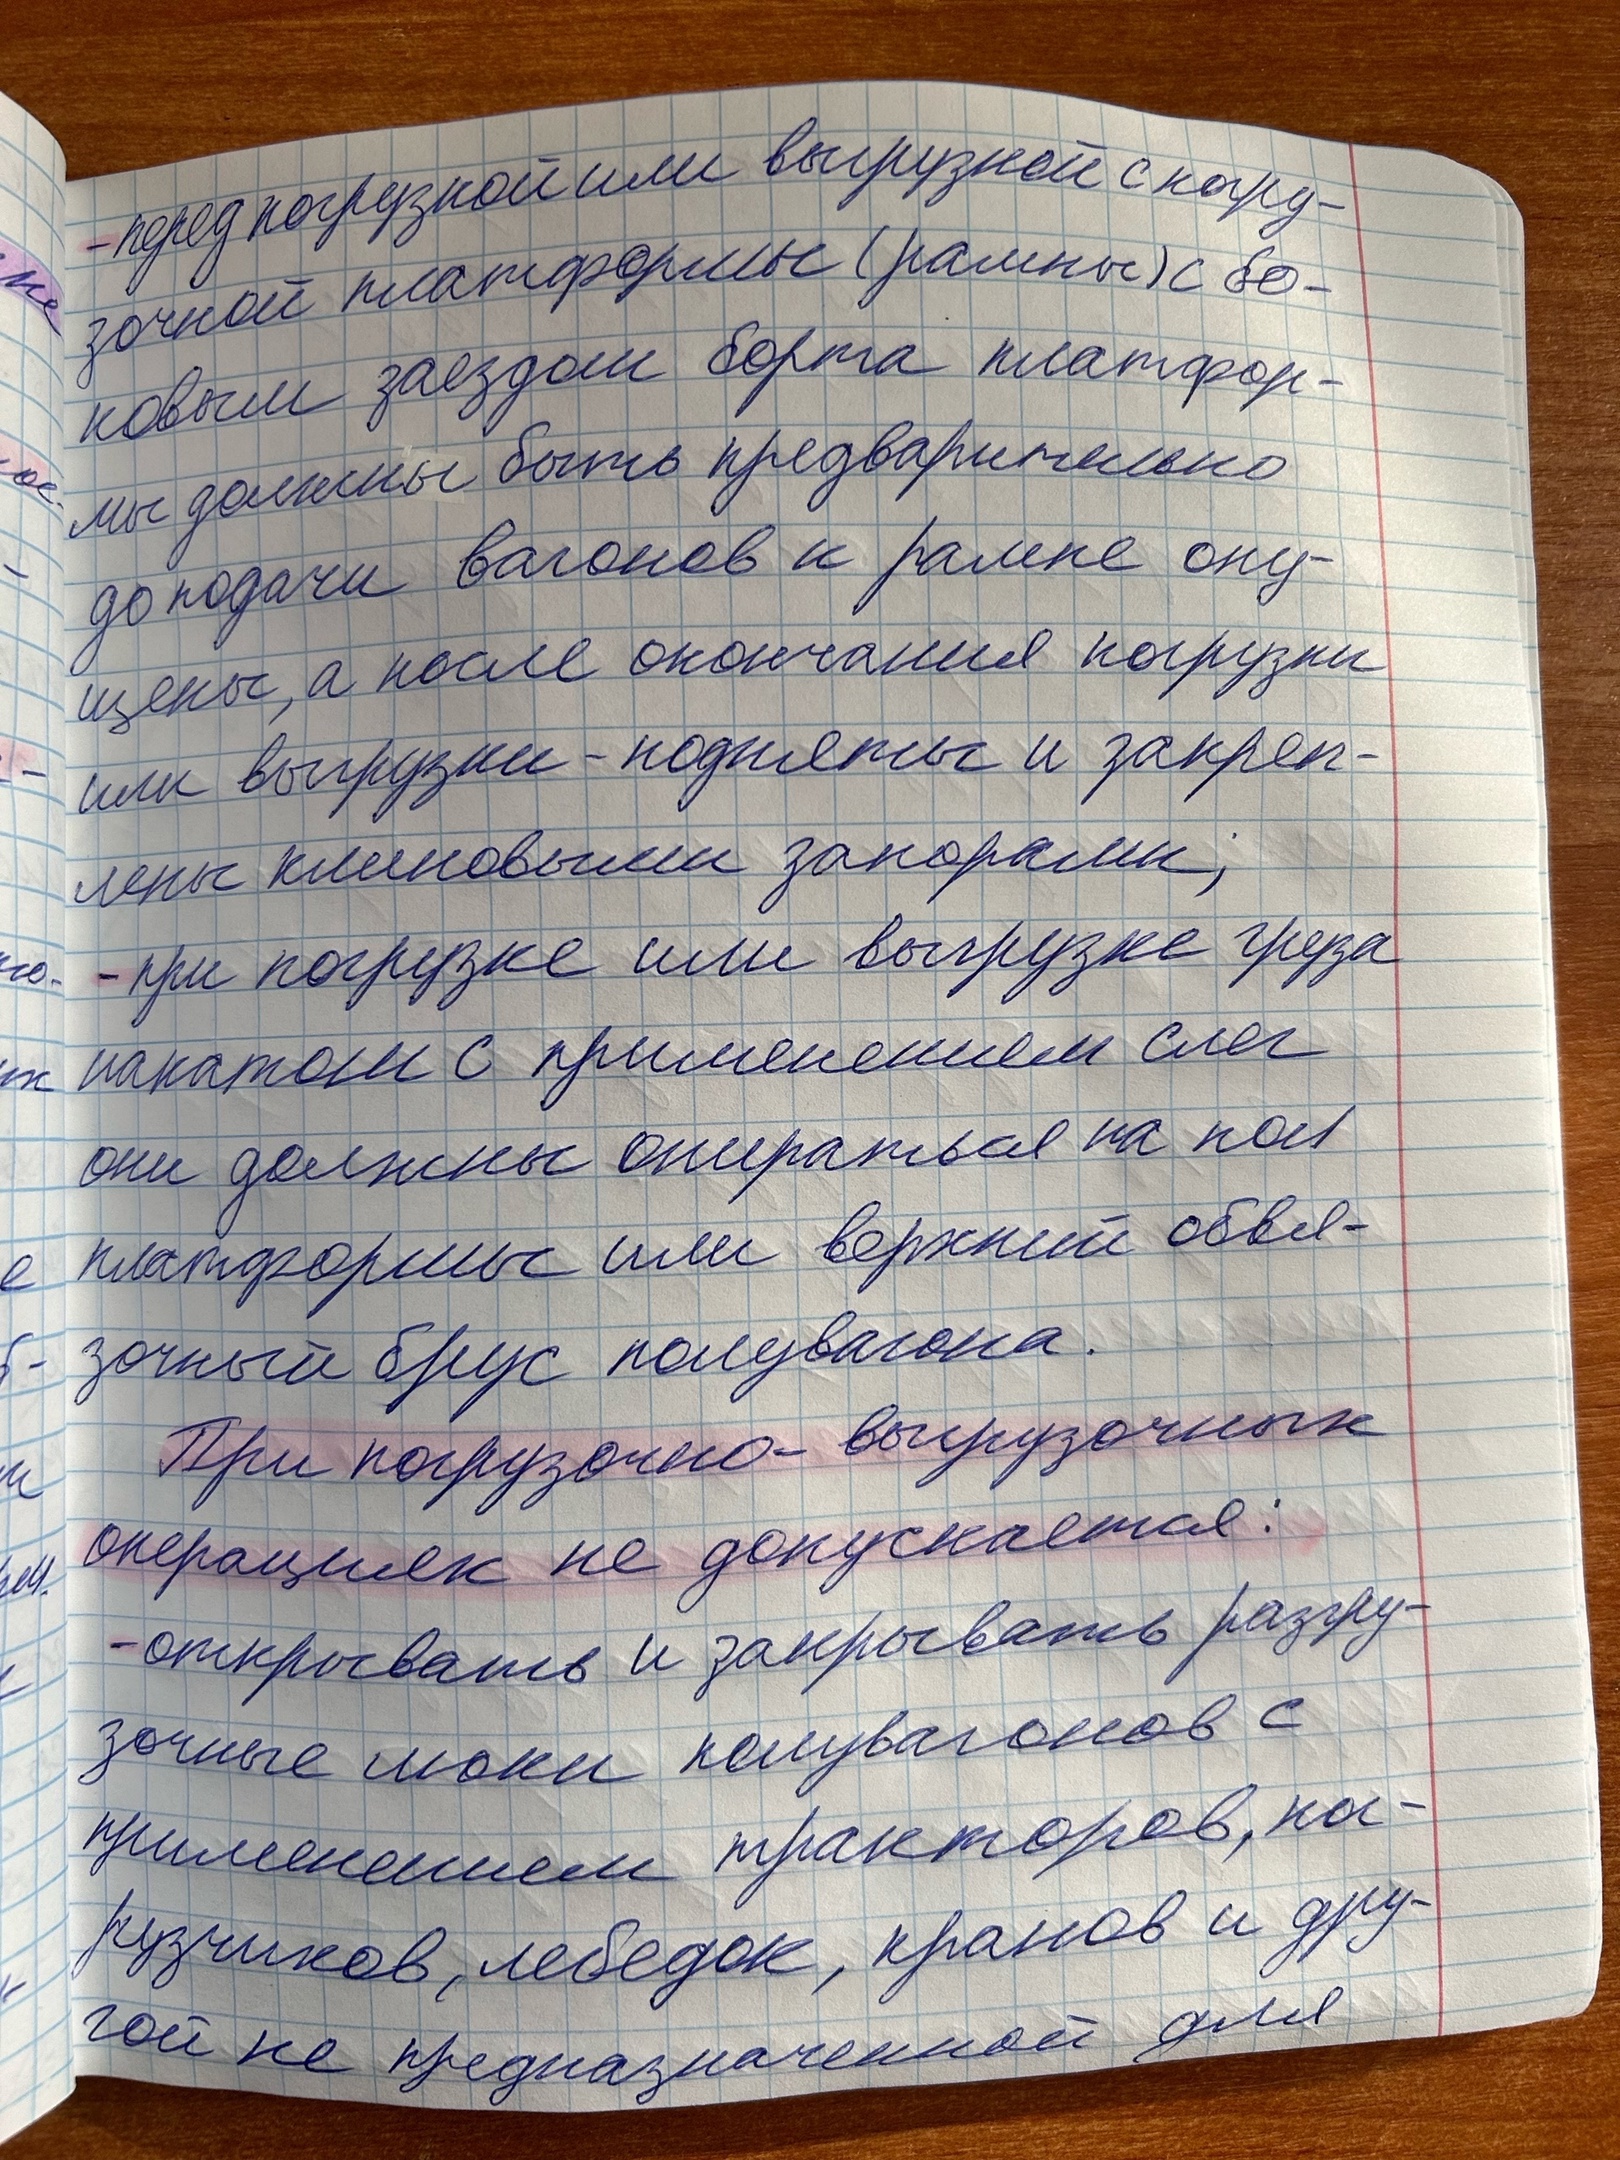 -перед погрузкой или выгрузкой с погру-
зочной платформы (рампы) с бо-
ковым заездом борта платфор-
мы должны быть предварительно
до подачи вагонов к рампе опу-
щены, а после окончания погрузки
или выгрузки - подняты и закреп-
лены клиновыми запорами;
-при погрузке или выгрузке груза
накатом с применением слег
они должны опираться на пол
платформы или верхний обвя-
зочный брус полувагона.
При погрузочно-выгрузочных
операциях не допускается:
-открывать и закрывать разгру-
зочные люки полувагонов с
применением тракторов, по-
рузчиков, лебедок, кранов и дру-
гой не предназначенной для